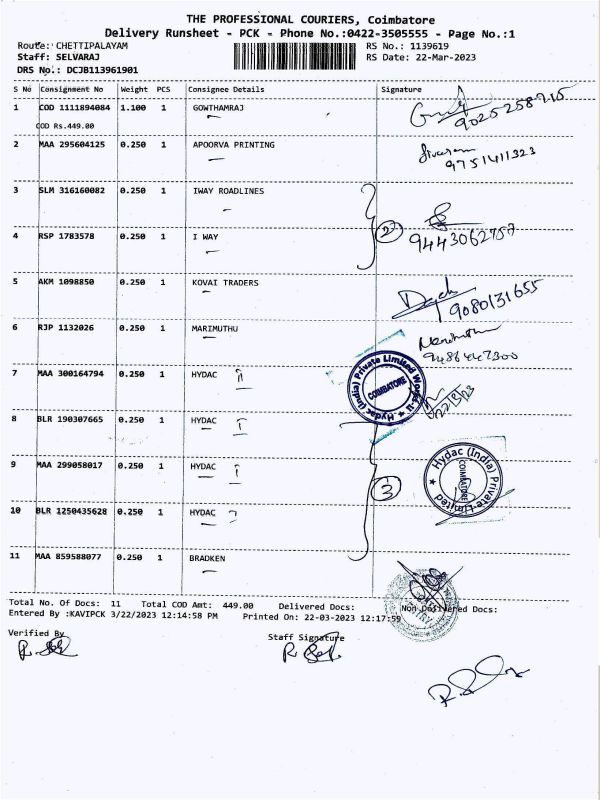 THE PROFESSIONAL COURIERS, Coimbatore
Delivery Runsheet - PCK - Phone No.:0422-3505555 - Page No.:1
Route: CHETTIPALAYAM
RS No.: 1139619
Staff: SELVARAJ
RS Date: 22-Mar-2023
DRS No.: DCJB113961901
S No Consignment No Weight PCS Consignee Details Signature
1 COD 1111894084 1.100 1 GOWTHAMRAJ
9025258715
COD Rs.449.00
2 MAA 295604125 0.250 1 APOORVA PRINTING
Sivaram
9751411323
3 SLM 316160082 0.250 1 IWAY ROADLINES
4 RSP 1783578 0.250 1 I WAY
2
9443062757
5 AKM 1098850 0.250 1 KOVAI TRADERS
9080131655
6 RJP 1132026 0.250 1 MARIMUTHU
Marimuthu
9486447300
7 MAA 300164794 0.250 1 HYDAC
Hydac (India) Private Limited
COIMBATORE
8 BLR 190307665 0.250 1 HYDAC
9 MAA 299058017 0.250 1 HYDAC
3
Hydac (India) Private Limited
COIMBATORE
10 BLR 1250435628 0.250 1 HYDAC
11 MAA 859588077 0.250 1 BRADKEN
Total No. Of Docs: 11 Total COD Amt: 449.00 Delivered Docs: Non Delivered Docs:
Entered By :KAVIPCK 3/22/2023 12:14:58 PM Printed On: 22-03-2023 12:17:59
Verified By
Staff Signature